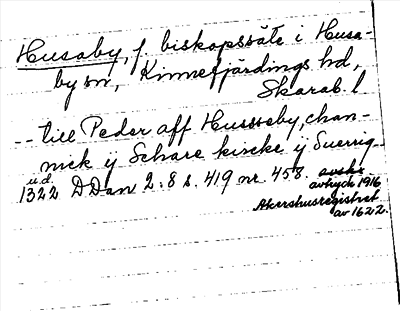 Husaby, f. biskopssäte i Husa-
by sn, Kinnefjärdings hd,
Skarab. l
-- till Peder aff Husseby, chan-
nick ij Schare kircke ij Suerrig --
u.d.
1322 DDan 2:8 s. 419 nr 458.
avtryck 1916
Akershusregistret
av 1622.